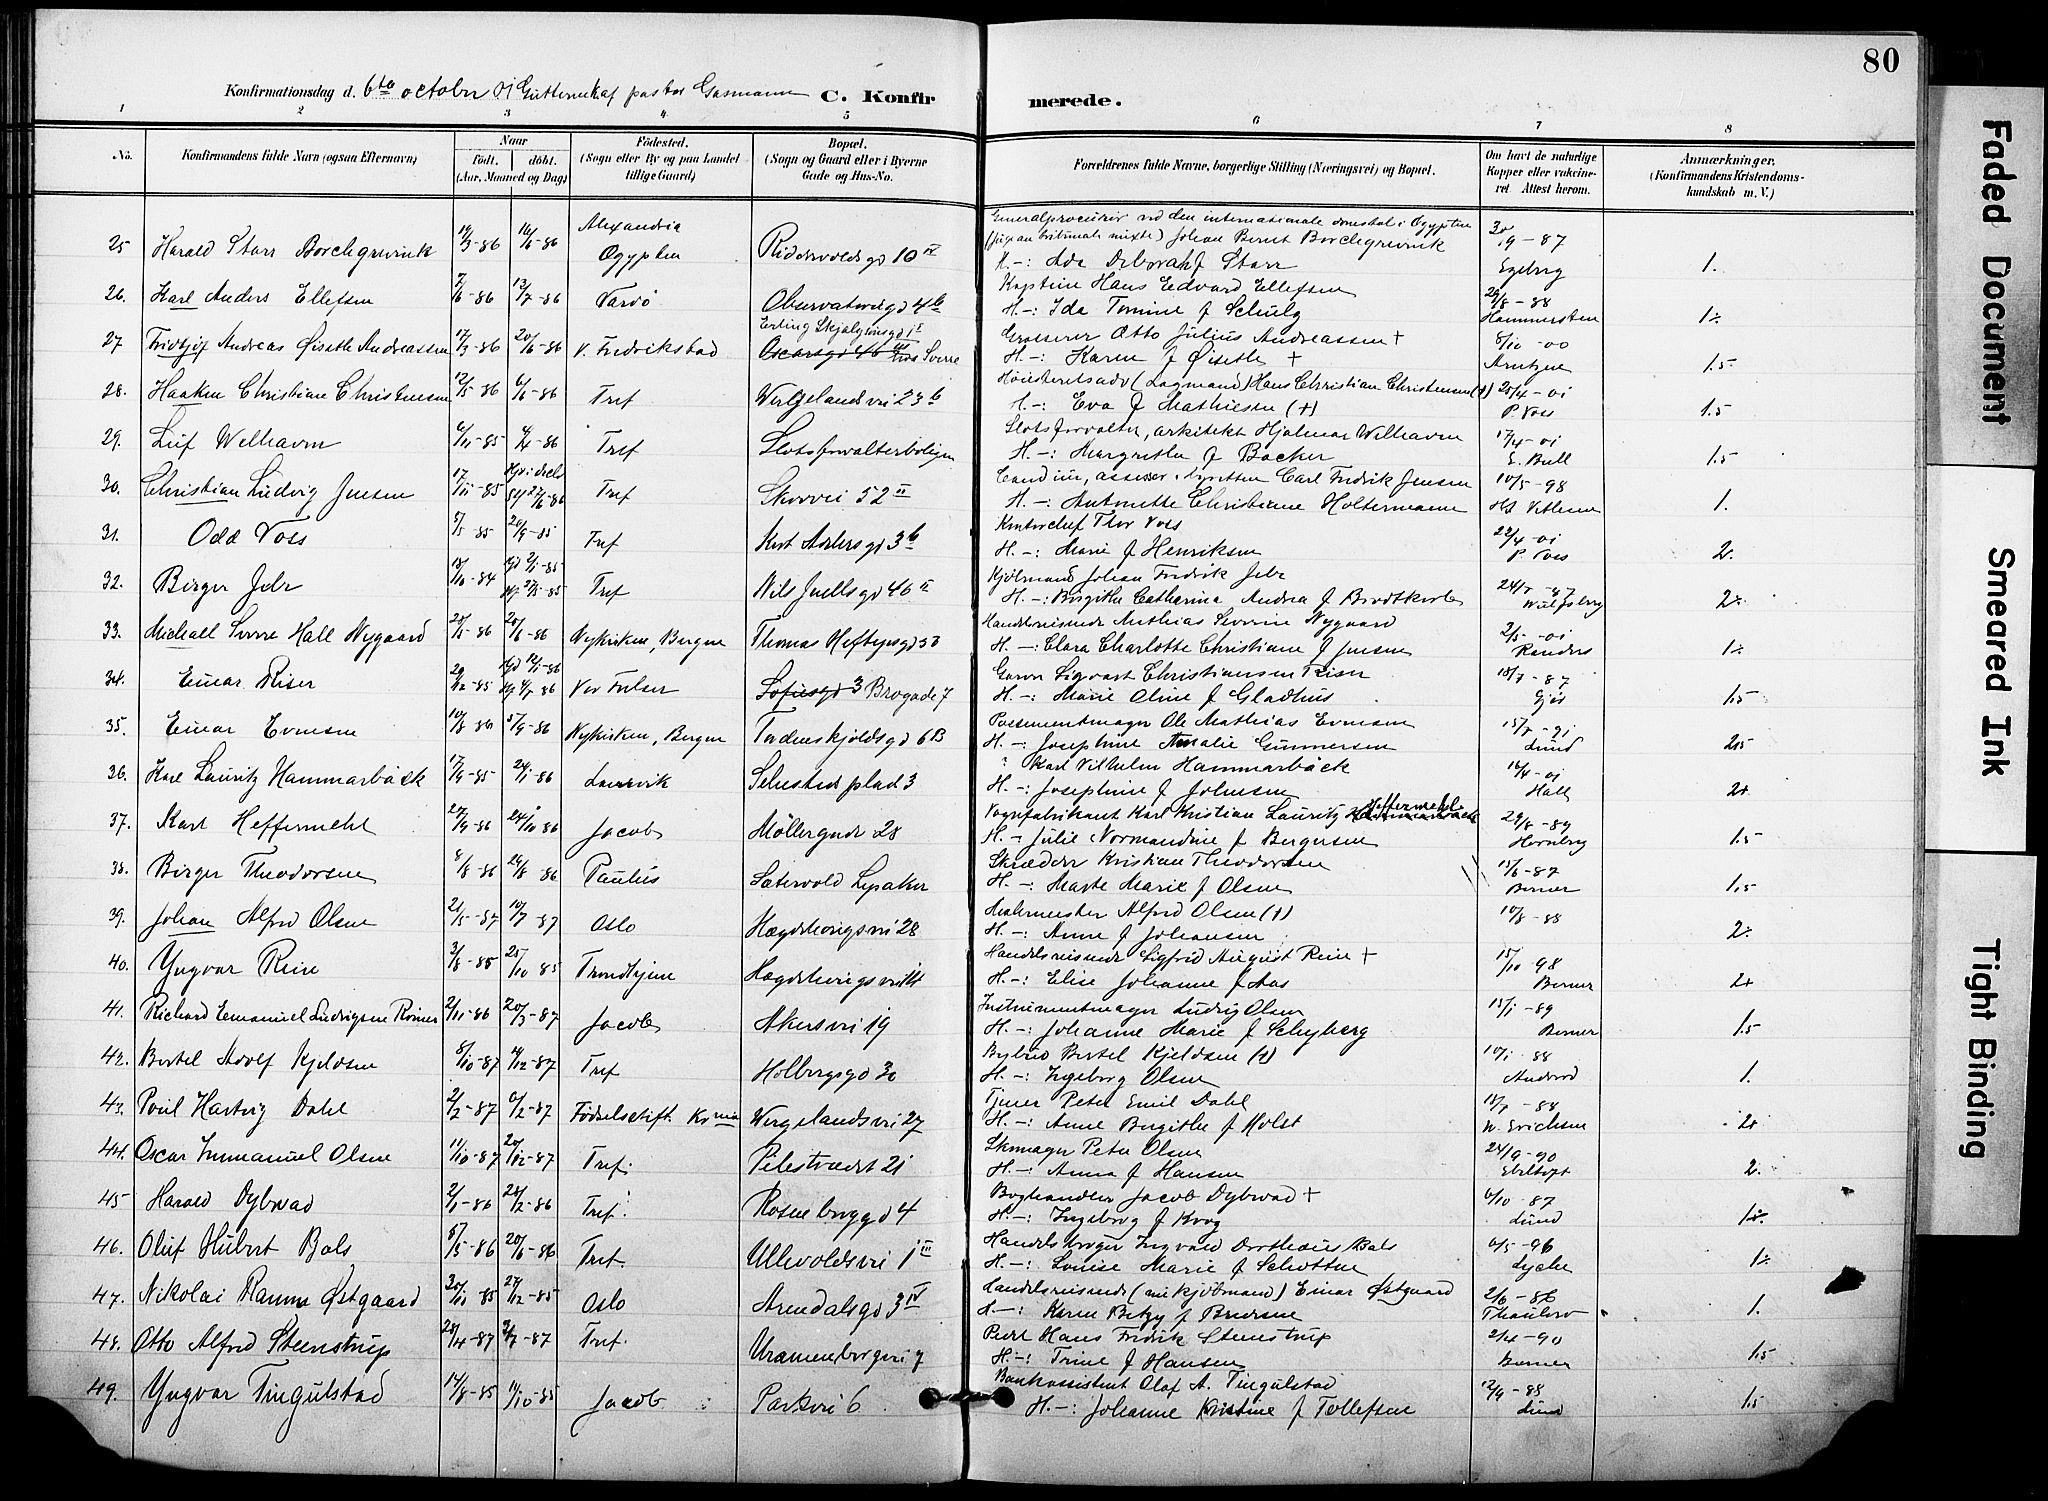 80
Konfirmationsdag d. 6te october 01 Gutterne af pastor Gasmann C. Konfirmerede.
1 2 3 4 5 6 7 8
No. Konfirmandens fulde Navn (ogsaa Efternavn) Naar født. døbt. (Aar, Maaned og Dag) Fødested. (Sogn eller By og paa Landet tillige Gaard) Bopæl. (Sogn og Gaard eller i Byerne Gade og Hus-No. Forældrenes fulde Navne, borgerlige Stilling (Næringsvei) og Bopæl. Om havt de naturlige Kopper eller vakcineret. Attest herom. Anmærkninger. (Konfirmandens Kristendomskundskab m. V.)
Generalprocurør ved den internationale domstol i Ægypten
25 Harald Starr Borchgrevink 19/3-86 16/6-86 Alexandria Ægypten Riddervoldsgd 10 IV Johan Bernt Borchgrevink 19-87
H.-: Ada Deborah f Starr Egeberg 1.
26. Karl Anders Ellefsen 2/6-86 13/7-86 Vardø Observatoriegd 4b Kaptein Hans Edvard Ellefsen 29/8-88
H.-: Ida Tomine f Schulz Hammersten
27 Fridtjof Andreas Øiseth Andreassen 17/3-86 20/6-86 V. Fredrikstad Erling Skjalgsonsgd 1 Oscarsgd 46 hos Sverre Grosserer Otto Julius Andreassen + 8/10-00
H.-: Karen f Øiseth + Arntzen 1.5
28. Haaken Christian Christensen 12/5-86 6/6-86 Tref Wergelandsvei 23b Høiesteretsadv (Lagmand) Hans Christian Christensen (+) 25/4-01
H.-: Eva f Mathiesen (+) P. Voss 1.5
29. Leif Welhaven 6/11-85 Tref Slotsforvalterboligen Slotsforvalter, arkitekt Hjalmar Welhaven 17/4-01
H.-: Margrethe f Backer E. Bull 1.5
30. Christian Ludvig Jensen 17/11-85 Tref Skovvei 52 II Cand jur, assessor i byretten Carl Fredrik Jensen 10/5-98
H.-: Antonette Christiane Holtermann 1.
31. Odd Voss 5/5 85 20/9-85 Tref Kurt Adlersgd 3b Kontorchef Thor Voss 22/4-01
H.-: Marie f Henriksen P. Voss 2.
32. Birger Jebe 18/10-84 Tref Nils Juellsgd 46 II Kjøbmand Johan Fredrik Jebe
H.-: Birgithe Catharina Andrea f Brodtkorb Wulfsberg
33. Michall Sverre Hall Nygaard 20/6-86 Nykirken, Bergen Thomas Heftyesgd 53 Handelsreisende Mathias Severin Nygaard 2/5-01
H.-: Clara Charlotte Christiane f Jensen Randers
34. Einar Riser 29/12-85 Sofiesgd 3 Brogade 7 Garver Sigvart Christiansen Riser 18/7-87
H.-: Marie Oline f Gladhus Gjør 1.5
35. Einar Evensen 10/8-86 5/9-86 Nykirken, Bergen Tordenskjoldsgd 6B Possementmager Ole Mathias Evensen 15/7-91
H.-: Josephine Amalie Gunnersen Lund 2.5
36. Karl Lauritz Hammarbäck 17/9-85 24/1-86 Laurvik Sehesteds plads 3 Karl Vilhelm Hammarbäck 16/4-01
H.-: Josephine f Johnsen Hall
37. Karl Heffermehl 20/9-86 24/10 86 Jacob Møllergade 28 Vognfabrikant Karl Kristian Lauritz Heffermehl 29/8-89
H.- Julie Normandine f Bergersen Hornberg 1.5
38. Birger Theodorsen 8/8-86 29/8 86 Paulus Lysaker Skrædder Kristian Theodorsen 15/6-87
H.-: Marte Marie f Olsen Berner 1.5
39. Johan Alfred Olsen 21/5-87 10/7-87 Oslo Hægdehougsvei 28 Malermester Alfred Olsen (+) 10/8-88
H.-: Anne f Johansen
40. Yngvar Rein 3/8-85 25/10 85 Trondhjem Handelsreisende Sigfrid August Rein + 15/10 98
H.-: Elise Johanne f Aas Berner
41. Richard Emanuel Ludvigsen Rømer 21/11-86 20/3-87 Jacob Akersvei 19 Instrumentmager Ludvig Olsen 15/1-89
H.-: Johanne Marie f Schyberg Berner 1.5
42. Bertel Adolf Kjeldsen 8/10-87 4/12-87 Tref Holbergsgd 30 Bybud Bertel Kjeldsen (+) 10/1-88
H.-: Ingeborg Olsen 1.
43. Poul Hartvig Dahl 2/2-87 6/2-87 Fødselsstift. Krania Wergelandsvei 27 Tjener Peter Emil Dahl 18/7-88
H.-: Anne Birgithe f Holst W. Erichsen
44. Oscar Immanuel Olsen 11/10-87 20/12-87 Tref. Pilestrædet 21 Skomager Peter Olsen 24/9-90
H.-: Anna f Hansen Ebeltoft 2.
45 Harald Dybwad 2/1-86 28/2-86 Tref. Rosenborggd 4 Boghandler Jacob Dybwad + 6/10-87
H.-: Ingeborg f Krog Lund
46. Oluf Hubert Bals 5/3-86 20/5-86 Tref. Ullevoldsvei 1 III Handelsborger Ingvald Dorotheus Bals 6/5-96
H.-: Louise Marie f Schøtten Lyche
47. Nikolai Ramm Østgaard 20/11 85 27/12-85 Oslo Arendalsgd 3 IV Handelsreisende (nu kjøbmand) Einar Østgaard 2/6-86
H.-: Karen Betzy f Bredesen Thaulow 1.
48. Otto Alfred Steenstrup 28/4-87 3/7-87 Tref. Uranienborgvei 7 Hans Fredrik Steenstrup 2/4-90
H.-: Trine f Hansen Berner 1.5
49. Yngvar Tingulstad 14/8-85 11/10-85 Jacob Parkvei 6 Bankassistent Olaf A. Tingulstad 12/9-88
H.-: Johanne Kristine f Tollefsen Lund 1.5
Faded Document
Smeared Ink
Tight Binding